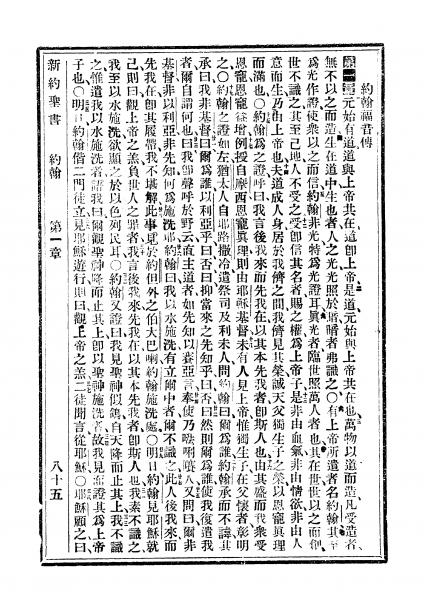 約翰福音傳
第一章元始有道道與上帝共在道卽上帝是道元始與上帝共在也萬物以道而造凡受造者
無不以之而造生在道中生也者人之光光照於暗暗者弗識之〇有上帝所遣者名約翰其至
爲光作證使衆以之而信約翰非光特爲光證耳眞光者臨世照萬人者也其在世世以之而創
世不識之其至己地人不受之受卽信其名者賜之權爲上帝子是非由血氣非由情欲非由人
意而生乃由上帝也夫道成人身居於我儕之間我儕見其榮誠天父獨生子之榮以恩寵眞理
而滿也〇約翰爲之證呼曰我言後我來而先我在以其本先我者卽斯人也由其盛而我衆受
恩寵恩寵益增例授自摩西恩寵眞理則由耶穌基督未有人見上帝惟獨生子在父懷者彰明
之〇約翰之證如左猶太人自耶路撒冷遣祭司及利未人問約翰曰爾爲誰約翰承而不諱其
承曰我非基督曰爾爲誰以利亞乎曰否曰抑當來之先知乎曰否曰然則爾爲誰使我復遣我
者爾自謂何也曰我卽聲呼於野云直主道者如先知以賽亞言奉使乃唎人又問曰爾非
基督非以利亞非先知何爲施洗耶約翰曰我以水施洗有立爾中者爾不識之此人後我來而
先我在卽其履帶我不堪解此事見於約但外之伯大巴喇約翰施洗處〇明日約翰見耶穌就
己則曰觀上帝之羔負世人之罪者我言後我來先我在以其本先我者卽斯人也我素不識之
我至以水施洗欲顯之於以色列民耳〇約翰又證曰我見聖神似鴿自天降而止其上我不識
之惟遣我以水施洗者語我曰爾觀聖神降而止其上卽以聖神施洗者故我見而證其爲上帝
子也〇明日約翰偕二門徒立見耶穌遊行則曰觀上帝之羔二徒聞言從耶穌〇耶穌顧之曰
新約聖書 約翰 第一章 八十五